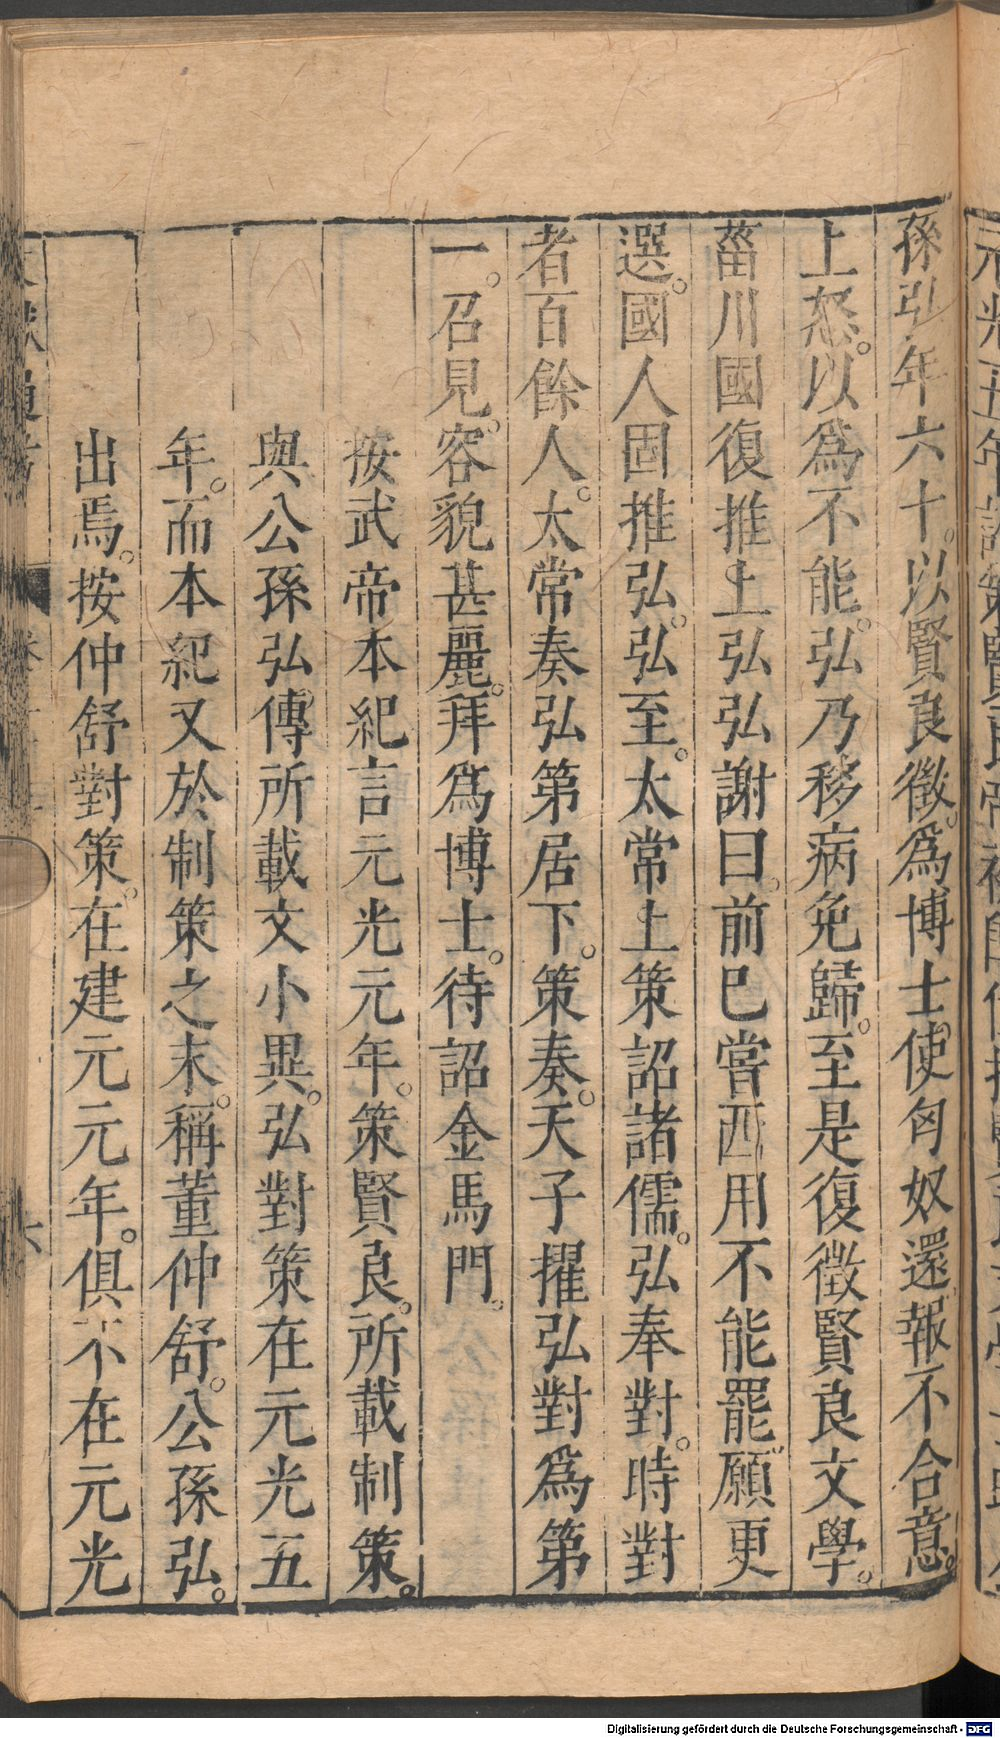 孫弘年六十。以賢良徵。爲博士。使匈奴還報不合意。
上怒。以爲不能。弘乃移病免歸。至是復徵賢良文學。
菑川國復推上弘弘謝曰。前巳嘗西用不能罷願更
選。國人固推弘。弘至。太常上策詔諸儒。弘奉對。時對
者百餘人。太常奏弘第居下。策奏。天子擢弘對爲第
一。召見。容貌甚麗。拜爲博士。待詔金馬門。
按武帝本紀言元光元年。策賢良。所載制策。
與公孫弘傳所載文小異。弘對策在元光五
年。而本紀又於制策之末。稱董仲舒。公孫弘。
出焉。按仲舒對策。在建元元年。俱不在元光
六
Digitalisierung gefördert durch die Deutsche Forschungsgemeinschaft - DFG